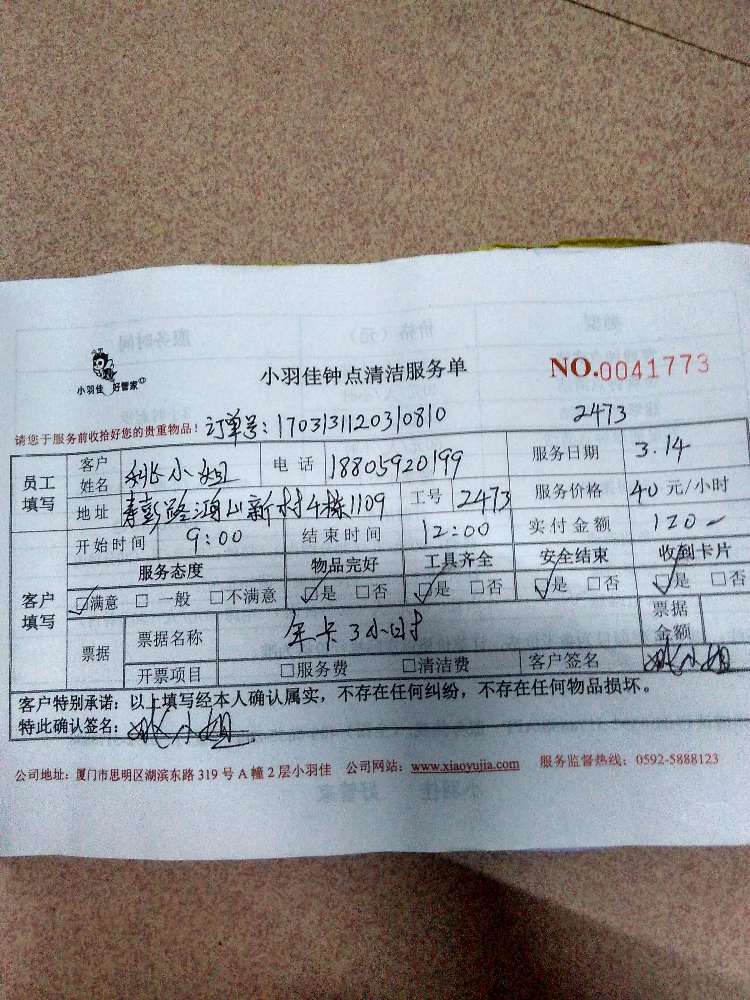 小羽佳 好管家
小羽佳钟点清洁服务单
NO.0041773
请您于服务前收拾好您的贵重物品! 订单号:1703131120310810 2473
员工填写 客户姓名 姚小姐 电话 18805920199 服务日期 3.14
地址 寿彭路鸿山新村4栋1109 工号 2473 服务价格 40元/小时
开始时间 9:00 结束时间 12:00 实付金额 120
客户填写 服务态度 物品完好 工具齐全 安全结束 收到卡片
☑满意 □一般 □不满意 ☑是 □否 ☑是 □否 ☑是 □否 ☑是 □否
票据 票据名称 年卡3小时 票据金额
开票项目 □服务费 □清洁费 客户签名 姚小姐
客户特别承诺:以上填写经本人确认属实,不存在任何纠纷,不存在任何物品损坏。
特此确认签名:姚小姐
公司地址:厦门市思明区湖滨东路319号A幢2层小羽佳 公司网站:www.xiaoyujia.com 服务监督热线:0592-5888123